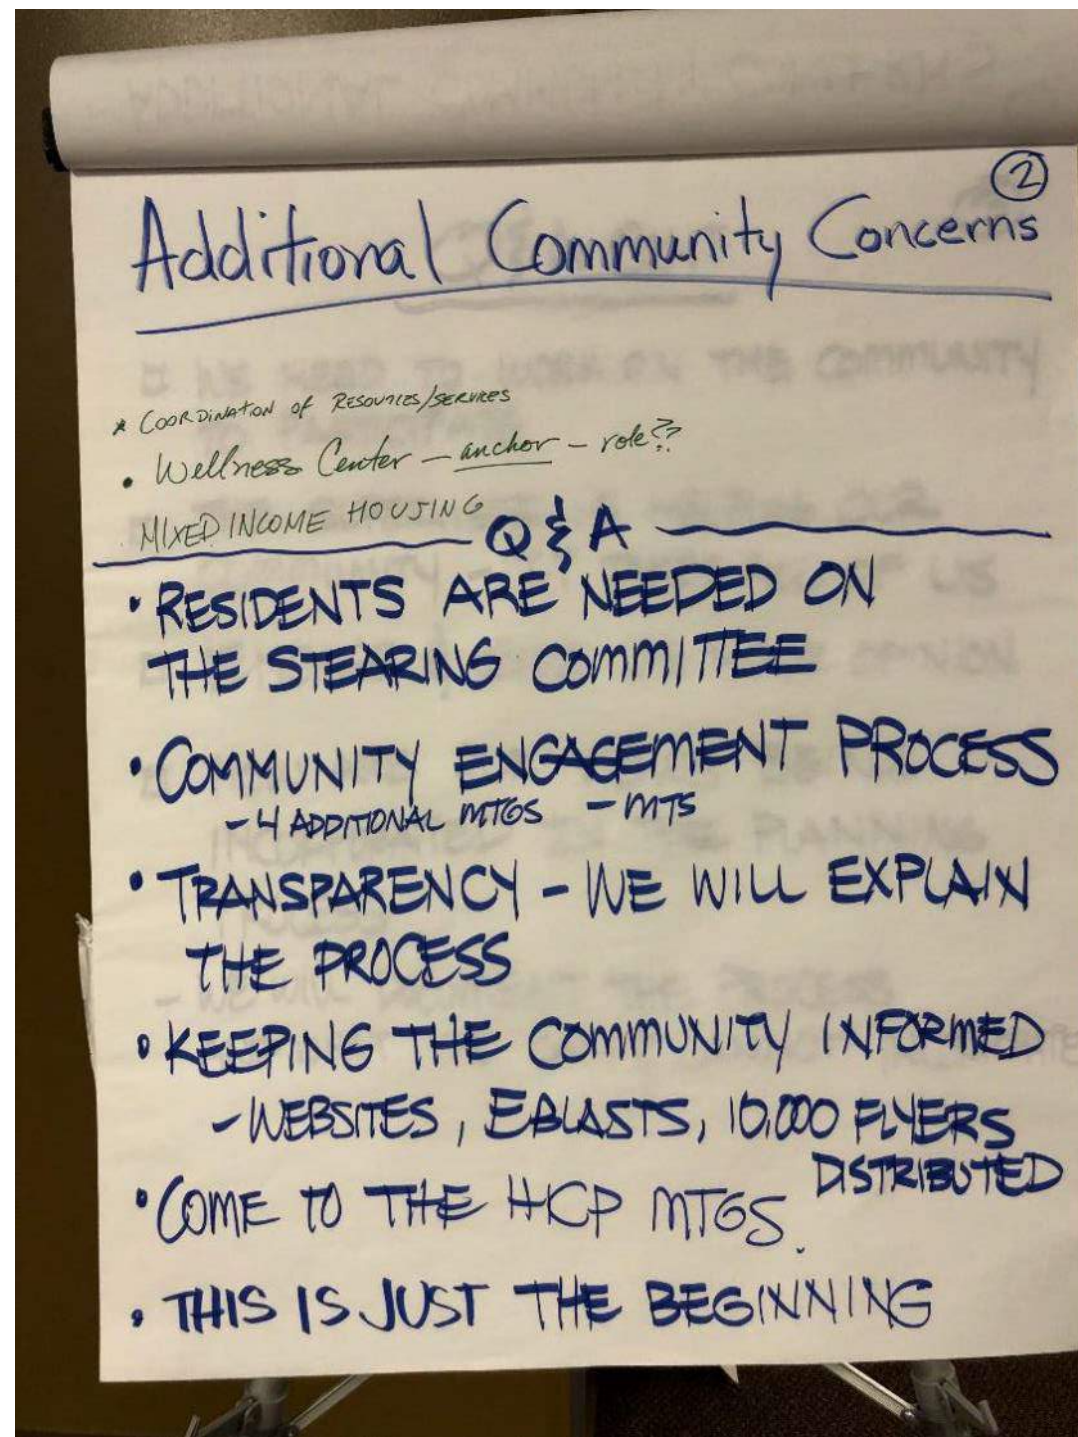 ②
Additional Community Concerns
* COORDINATION of RESOURCES/SERVICES
• Wellness Center – anchor – role??
MIXED INCOME HOUSING
Q & A
• RESIDENTS ARE NEEDED ON
THE STEARING COMMITTEE
• COMMUNITY ENGAGEMENT PROCESS
- 4 ADDITIONAL MTGS - MTS
• TRANSPARENCY - WE WILL EXPLAIN
THE PROCESS
• KEEPING THE COMMUNITY INFORMED
- WEBSITES, EBLASTS, 10,000 FLYERS
DISTRIBUTED
• COME TO THE HCP MTGS.
• THIS IS JUST THE BEGINNING